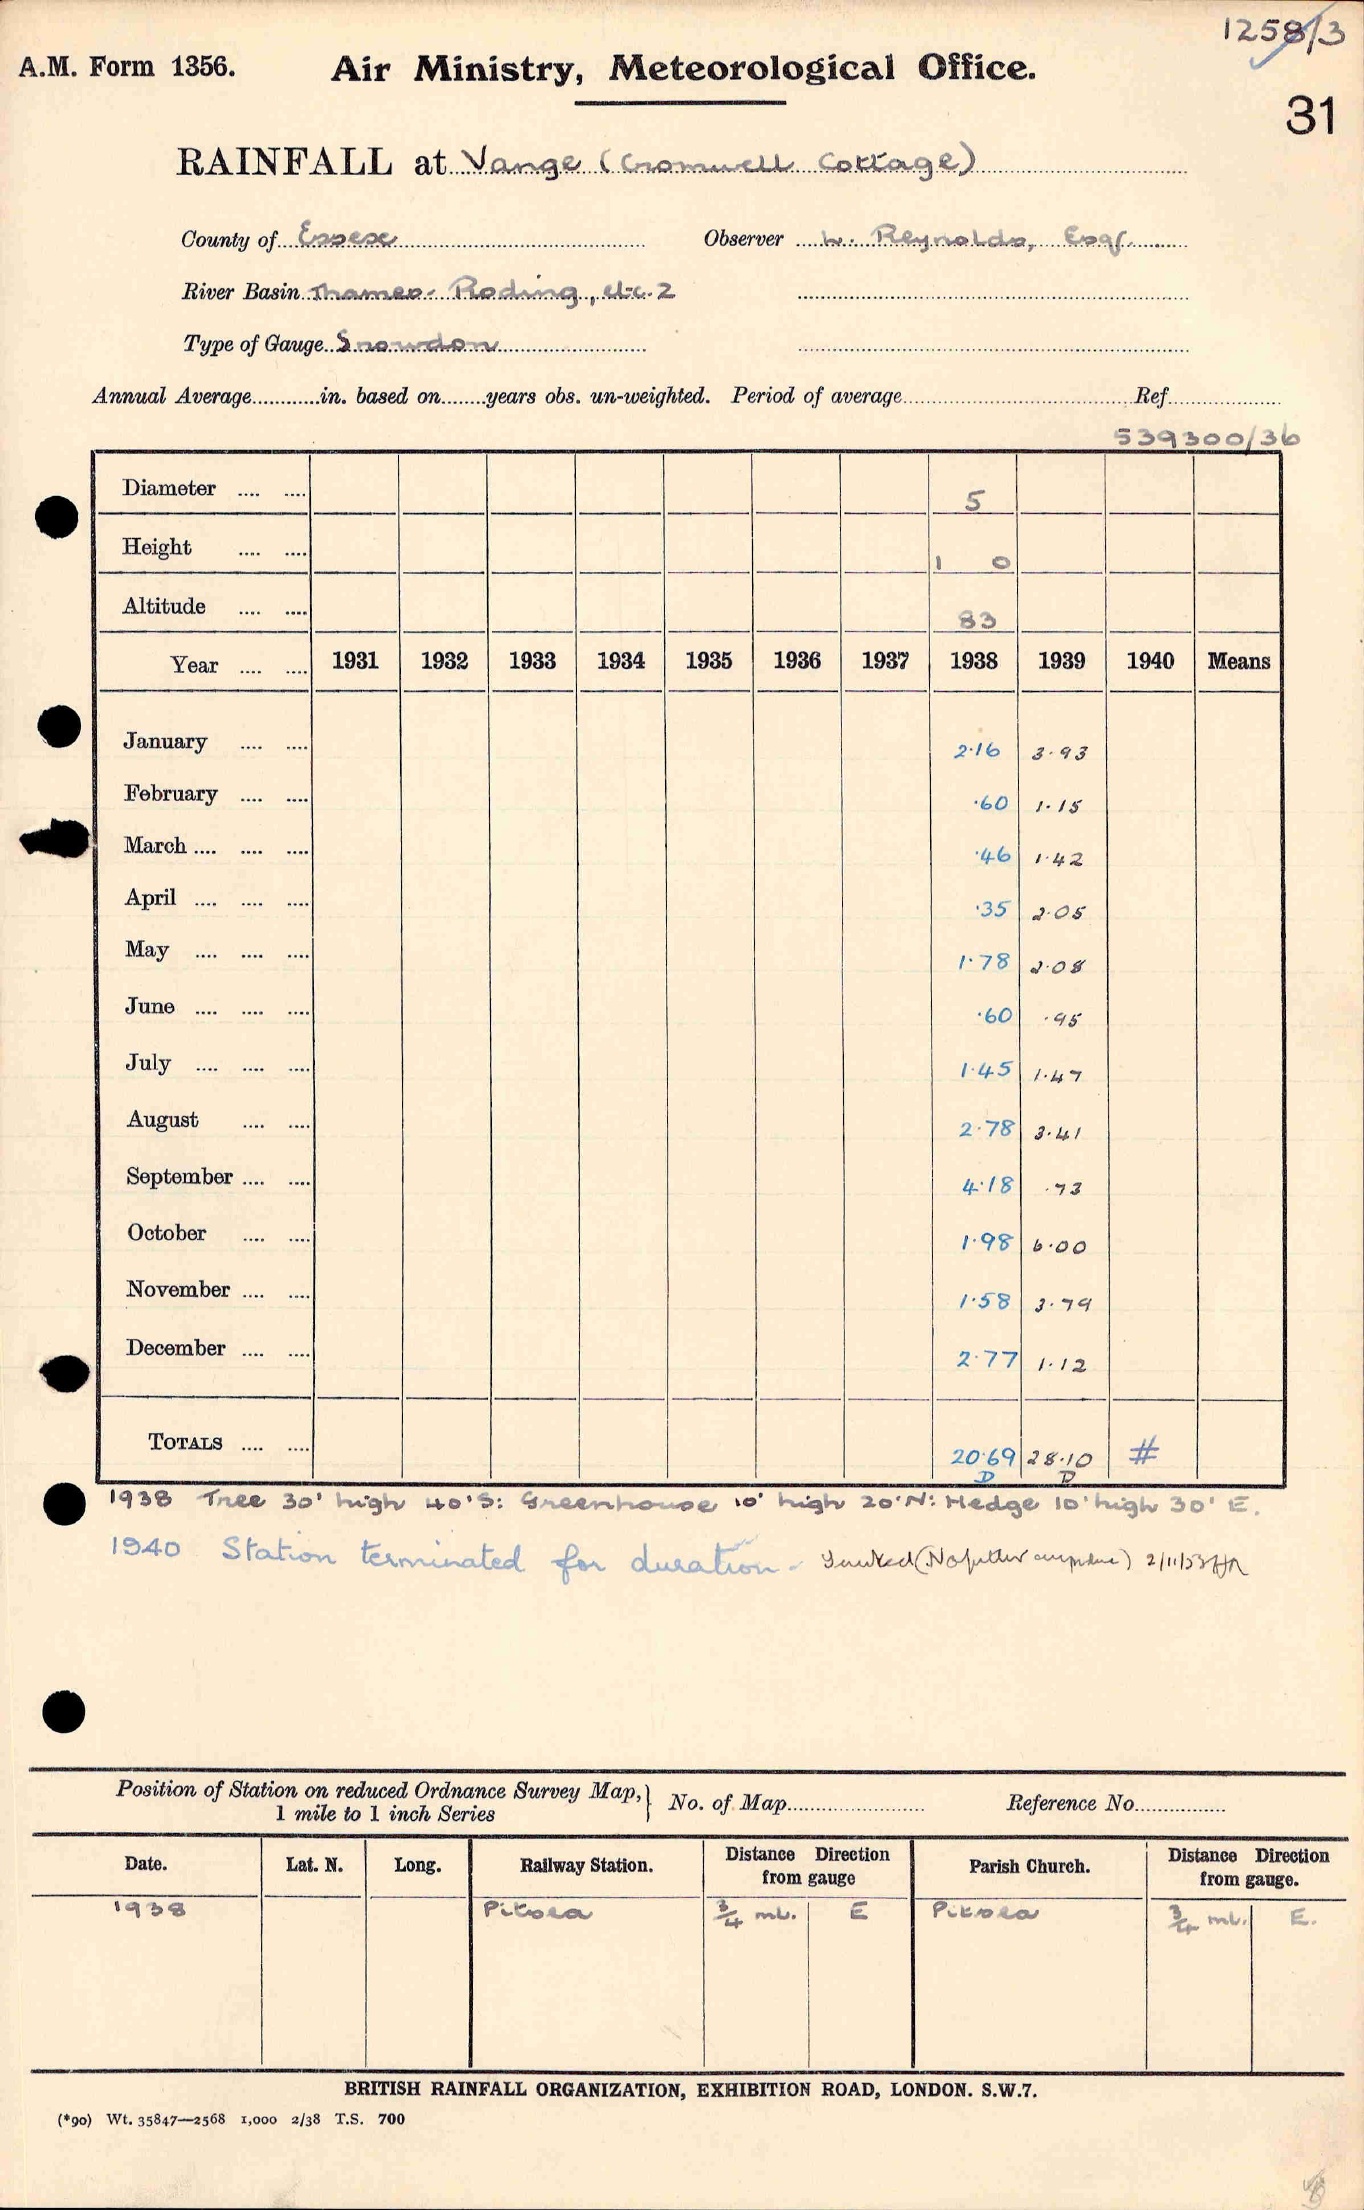 1258/3
A.M. Form 1356. Air Ministry, Meteorological Office.
31
RAINFALL at Vange (Cromwell Cottage)
County of Essex Observer W. Reynolds, Esq.
River Basin Thames-Roding, etc. 2
Type of Gauge Snowdon
Annual Average............in. based on........years obs. un-weighted. Period of average........ Ref........
539300/36
Diameter .... .... 5
Height .... .... 1 0
Altitude .... .... 83
Year .... .... 1931 1932 1933 1934 1935 1936 1937 1938 1939 1940 Means
January .... .... 2.16 3.93
February .... .... .60 1.15
March .... .... .... .46 1.42
April .... .... .... .35 2.05
May .... .... .... 1.78 2.08
June .... .... .... .60 .95
July .... .... .... 1.45 1.47
August .... .... 2.78 3.41
September .... .... 4.18 .73
October .... .... 1.98 6.00
November .... .... 1.58 3.79
December .... .... 2.77 1.12
TOTALS .... .... 20.69 28.10 #
D D
1938 Tree 30' high 40' S: Greenhouse 10' high 20' N: Hedge 10' high 30' E.
1940 Station terminated for duration - (No further ) 2/11/53
Position of Station on reduced Ordnance Survey Map, } No. of Map........ Reference No........
1 mile to 1 inch Series
Date. Lat. N. Long. Railway Station. Distance Direction from gauge Parish Church. Distance Direction from gauge.
1938 Pitsea 3/4 ml. E Pitsea 3/4 ml. E.
BRITISH RAINFALL ORGANIZATION, EXHIBITION ROAD, LONDON. S.W.7.
(*90) Wt. 35847—2568 1,000 2/38 T.S. 700